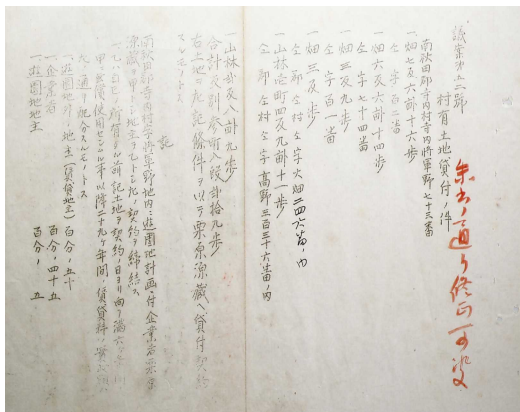 議案第五二號
村有土地貸付ノ件
朱書ノ通リ修正可決
南秋田郡寺内村寺内將軍野七十三番
一畑七反六畝十六歩
仝字百二番
一畑六反六畝十四歩
仝字七十四番
一畑三反九歩
仝字百一番
一畑三反歩
仝郡仝村仝字火畑二四六番ノ内
一山林壱町四反九畝十一歩
仝郡仝村仝字高野三百三十六番ノ内
一山林弐反八畝九歩
右土地ヲ左記條件ヲ以テ栗原源藏ヘ貸付契約
スルモノトス
記
南秋田郡寺内村字將軍野地内ニ遊園地計画ニ付企業者栗原
源藏ヲ甲トシ地主ヲ乙トシ左ノ契約ヲ締結ス
一、乙ハ自己ノ所有ニ係ル前記土地ヲ契約ノ日ヨリ向フ満六ヶ年間
甲ニ無償使用セシメ第七年以降二十九ヶ年間ノ賃貸料ハ
左ノ通リ配分スルモノトス
一、遊園地外ノ地主(賃貸地主) 百分ノ五十
一、企業者 百分ノ四十五
一、遊園地地主 百分ノ五